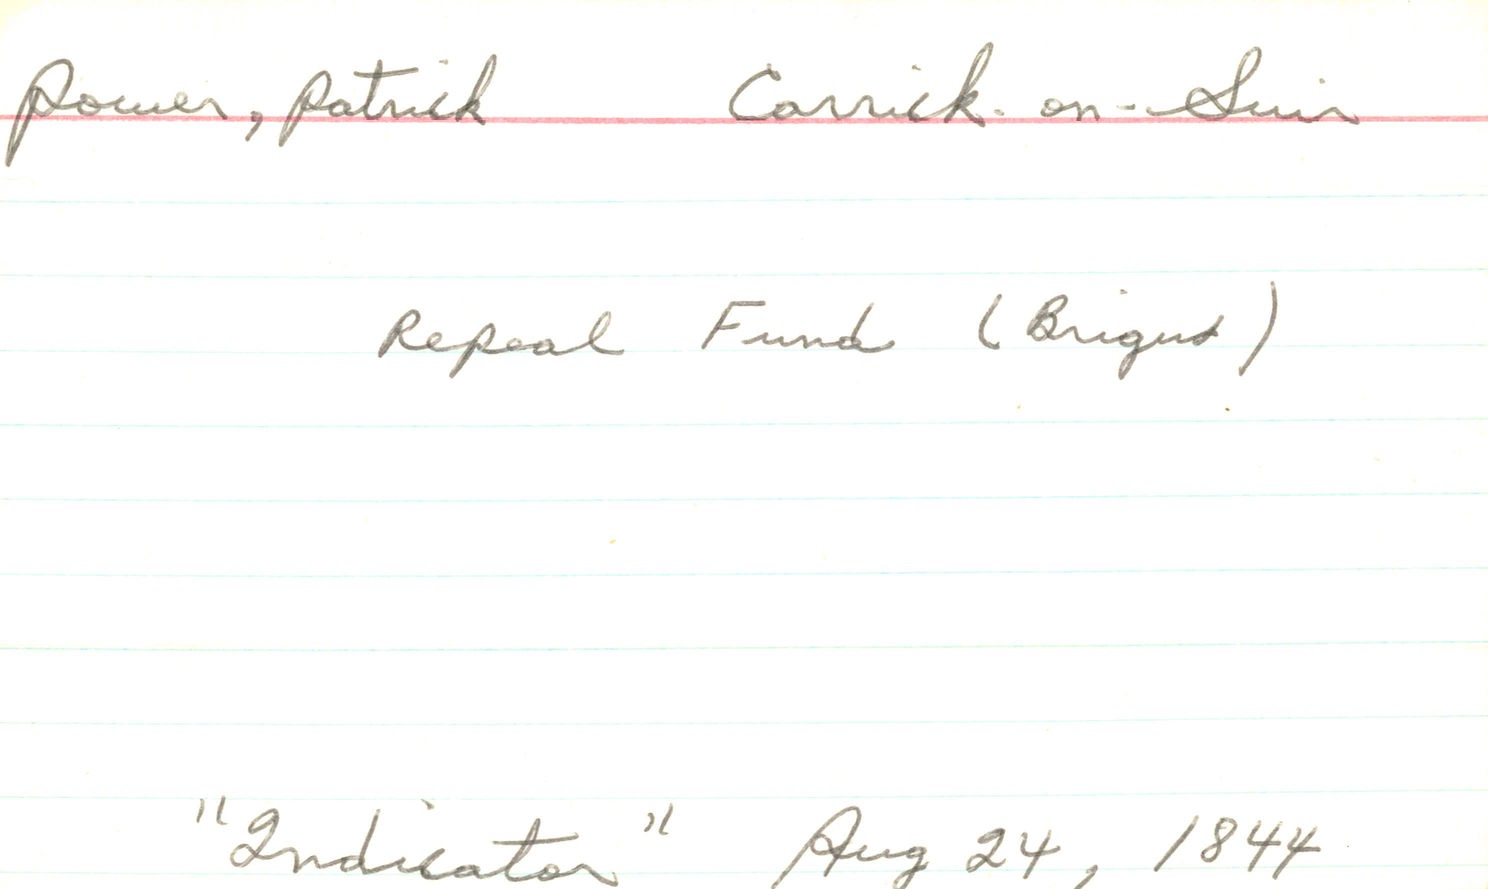 Power, Patrick Carrick-on-Suir
Repeal Fund (Brigus)
"Indicator" Aug 24, 1844